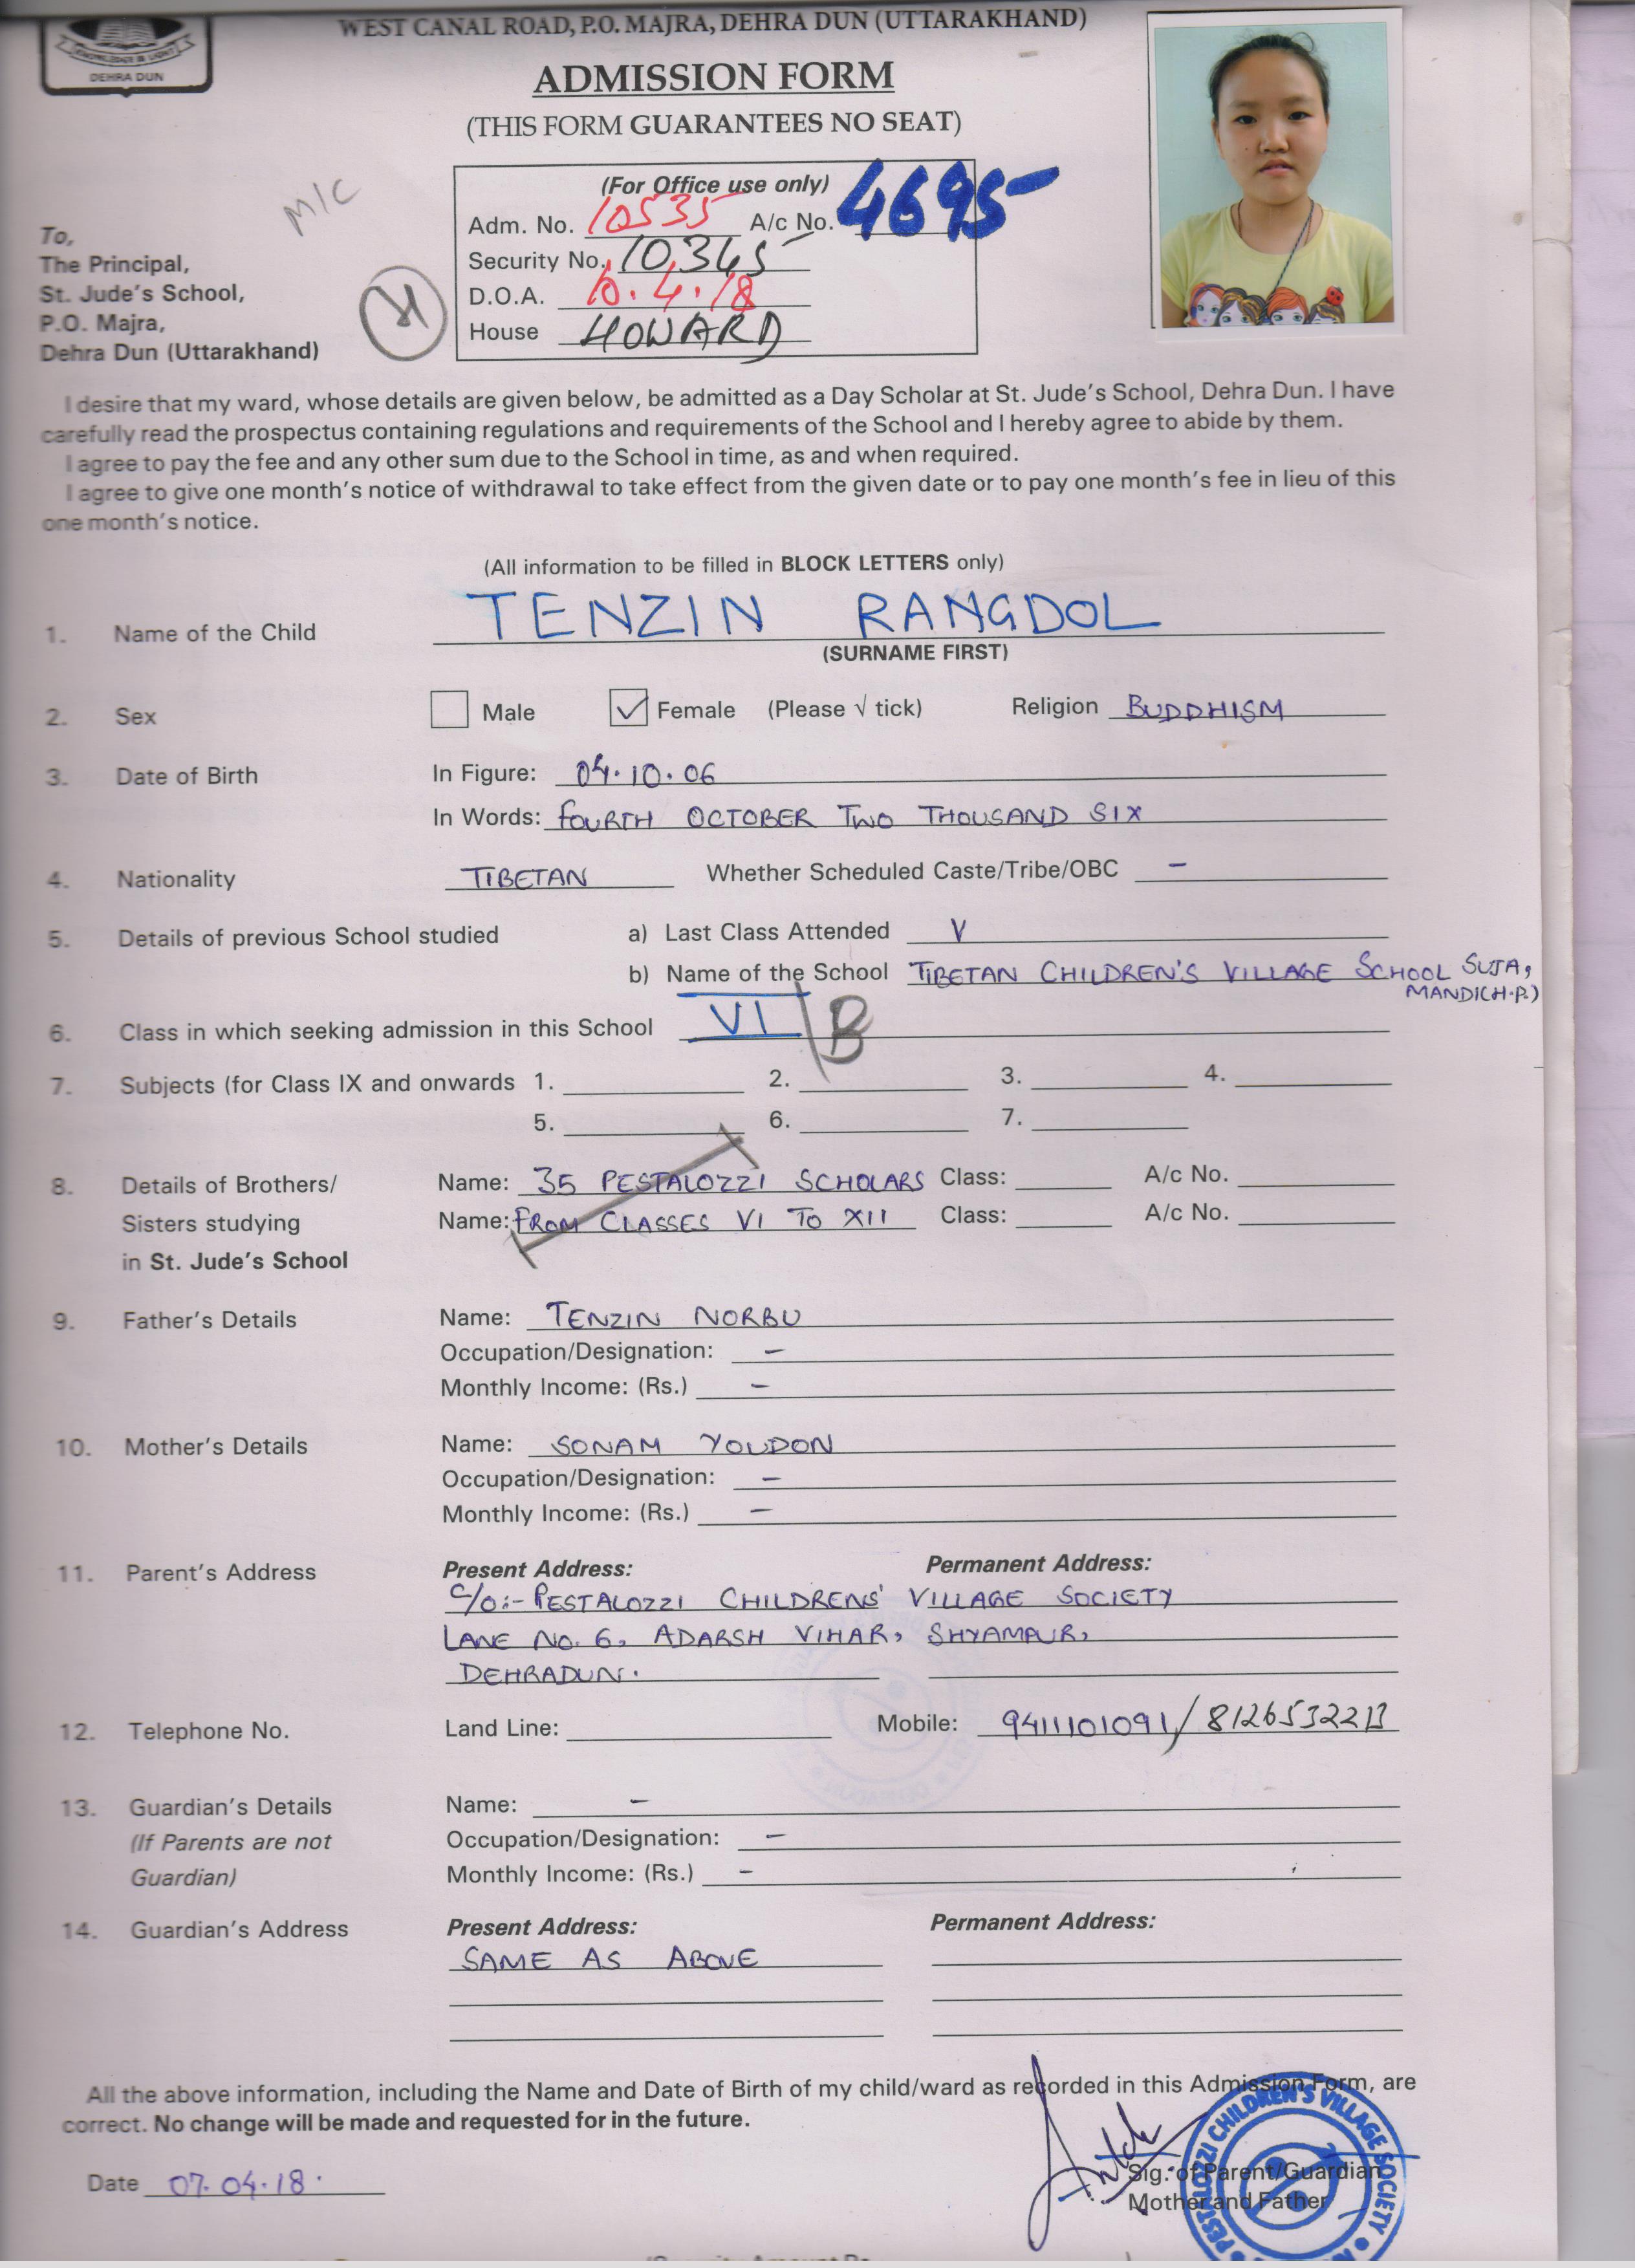 WEST CANAL ROAD, P.O. MAJRA, DEHRA DUN (UTTARAKHAND)
KNOWLEDGE IS LIGHT
DEHRA DUN
ADMISSION FORM
(THIS FORM GUARANTEES NO SEAT)
M/C
(For Office use only)
Adm. No. 10535 A/c No. 4695
Security No. 10345
D.O.A. 10.4.18
House HOWARD
To,
The Principal,
St. Jude's School,
P.O. Majra,
Dehra Dun (Uttarakhand)
I desire that my ward, whose details are given below, be admitted as a Day Scholar at St. Jude's School, Dehra Dun. I have
carefully read the prospectus containing regulations and requirements of the School and I hereby agree to abide by them.
I agree to pay the fee and any other sum due to the School in time, as and when required.
I agree to give one month's notice of withdrawal to take effect from the given date or to pay one month's fee in lieu of this
one month's notice.
(All information to be filled in BLOCK LETTERS only)
1. Name of the Child TENZIN RANGDOL
(SURNAME FIRST)
2. Sex Male Female (Please √ tick) Religion BUDDHISM
3. Date of Birth In Figure: 04.10.06
In Words: FOURTH OCTOBER TWO THOUSAND SIX
4. Nationality TIBETAN Whether Scheduled Caste/Tribe/OBC -
5. Details of previous School studied a) Last Class Attended V
b) Name of the School TIBETAN CHILDREN'S VILLAGE SCHOOL SUJA,
MANDI(H.P.)
6. Class in which seeking admission in this School VI B
7. Subjects (for Class IX and onwards 1. 2. 3. 4.
5. 6. 7.
8. Details of Brothers/ Name: 35 PESTALOZZI SCHOLARS Class: A/c No.
Sisters studying Name: FROM CLASSES VI TO XII Class: A/c No.
in St. Jude's School
9. Father's Details Name: TENZIN NORBU
Occupation/Designation: -
Monthly Income: (Rs.) -
10. Mother's Details Name: SONAM YOUDON
Occupation/Designation: -
Monthly Income: (Rs.) -
11. Parent's Address Present Address: Permanent Address:
C/O:- PESTALOZZI CHILDRENS' VILLAGE SOCIETY
LANE NO. 6, ADARSH VIHAR, SHYAMPUR,
DEHRADUN.
12. Telephone No. Land Line: Mobile: 9411101091/
13. Guardian's Details Name: -
(If Parents are not Occupation/Designation: -
Guardian) Monthly Income: (Rs.) -
14. Guardian's Address Present Address: Permanent Address:
SAME AS ABOVE
All the above information, including the Name and Date of Birth of my child/ward as recorded in this Admission Form, are
correct. No change will be made and requested for in the future.
Date 07.04.18.
Sig. of Parent/Guardian
Mother and Father
PESTALOZZI CHILDREN'S VILLAGE SOCIETY